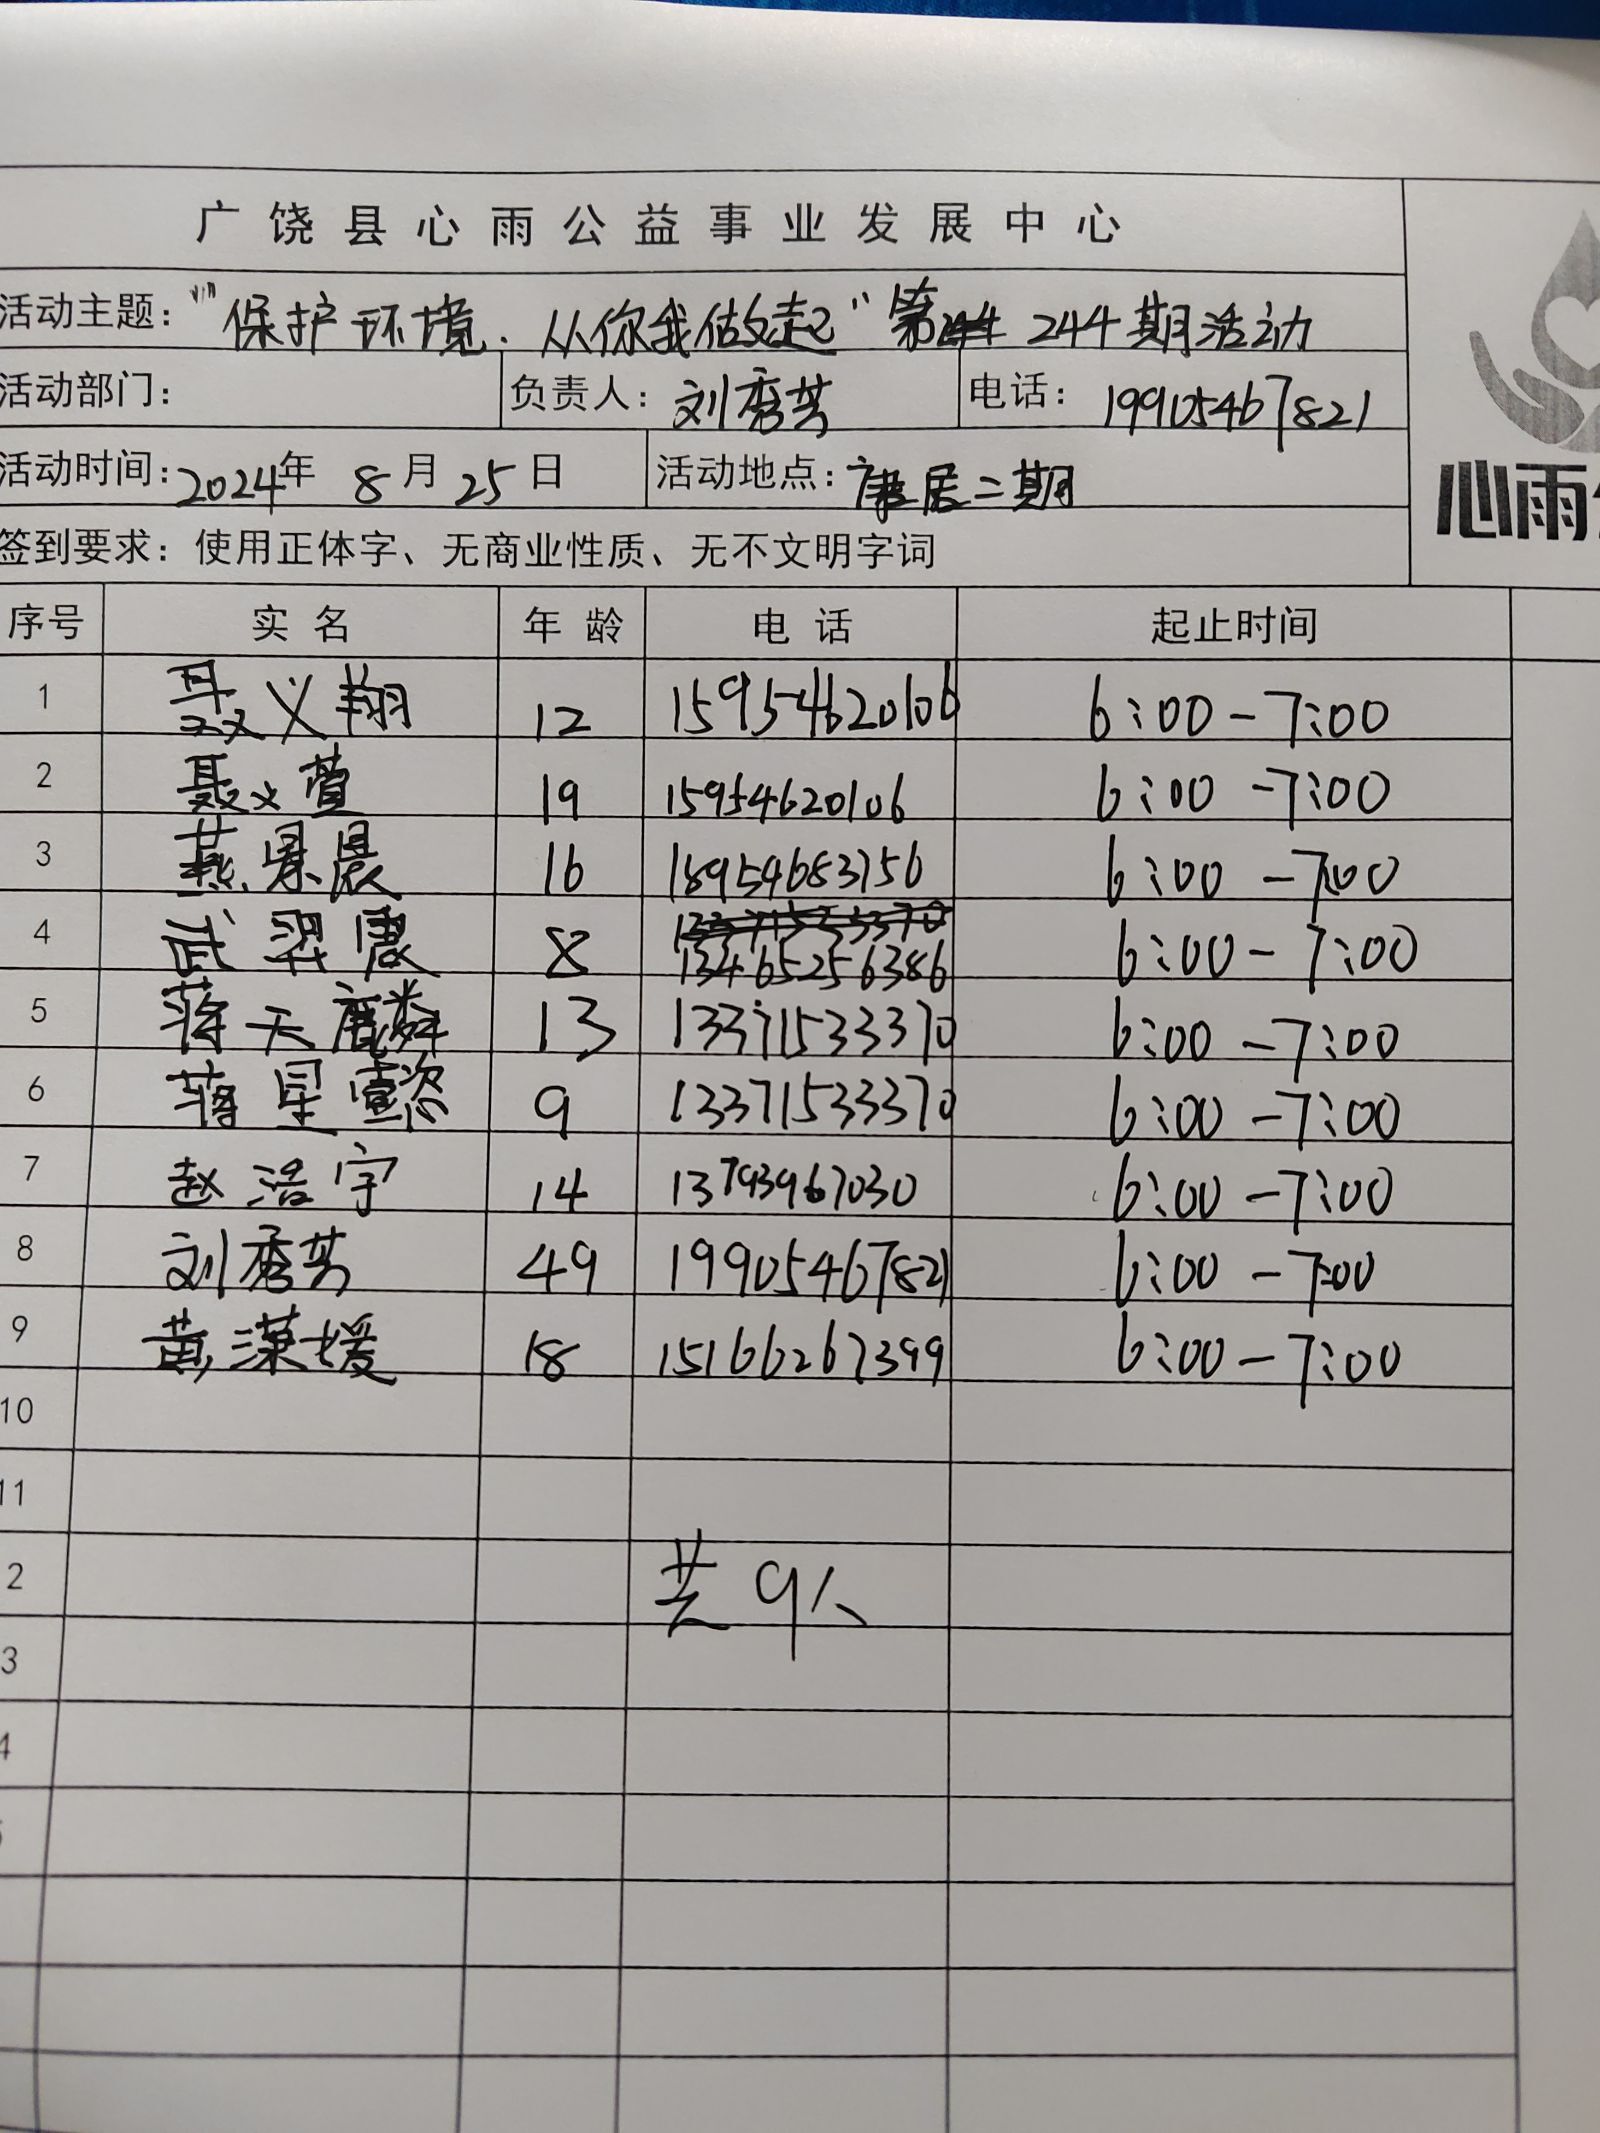 广饶县心雨公益事业发展中心
活动主题：“保护环境．从你我做起”第244期活动
活动部门： 负责人：刘秀芸 电话：19905467821
活动时间：2024年 8月25日 活动地点：康居二期
心雨
签到要求：使用正体字、无商业性质、无不文明字词
序号 实名 年龄 电话 起止时间
1 聂义翔 12 15954620106 6:00-7:00
2 聂义萱 19 15954620106 6:00-7:00
3 燕景晨 16 18954683156 6:00-7:00
4 武羿震 8 13465256386 6:00-7:00
5 蒋天麟 13 13371533370 6:00-7:00
6 蒋星懿 9 13371533370 6:00-7:00
7 赵浩宇 14 13793967030 6:00-7:00
8 刘秀芸 49 19905467821 6:00-7:00
9 黄潆媛 18 15166267399 6:00-7:00
10
11
2 共9人
3
4